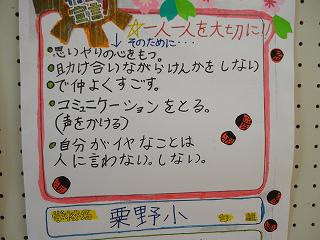 ☆一人一人を大切に!!
↓そのために・・・
●思いやりの心をもつ。
●助け合いながらけんかをしない
●で仲よくすごす。
●コミュニケーションをとる。
(声をかける)
●自分がイヤなことは
人に言わない。しない。
学校名
粟野小